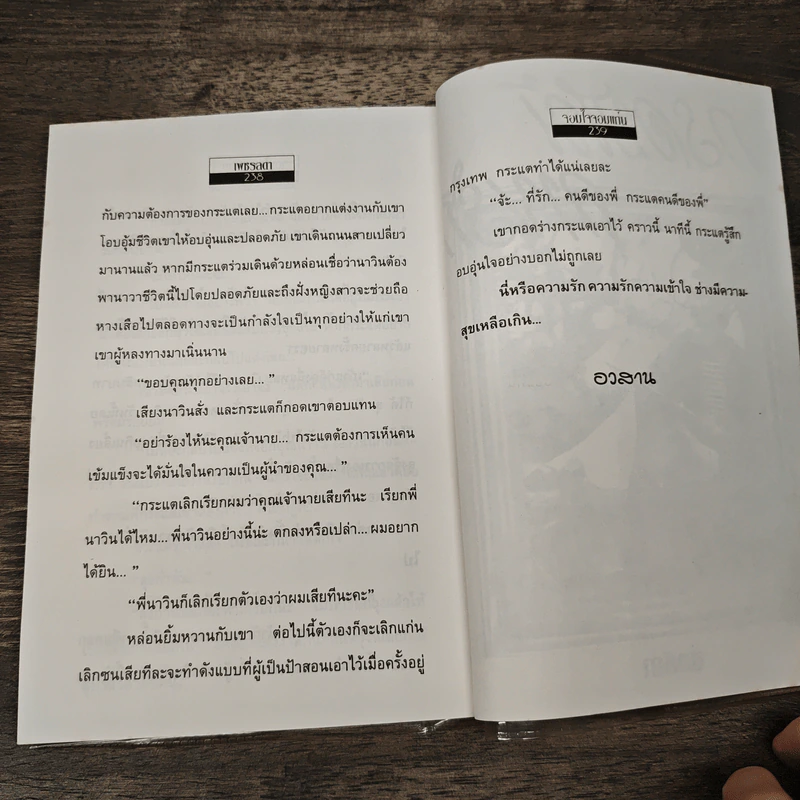 เพชรลดา
238
กับความต้องการของกระแตเลย... กระแตอยากแต่งงานกับเขา
โอบอุ้มชีวิตเขาให้อบอุ่นและปลอดภัย เขาเดินถนนสายเปลี่ยว
มานานแล้ว หากมีกระแตร่วมเดินด้วยหล่อนเชื่อว่านาวินต้อง
พานาวาชีวิตนี้ไปโดยปลอดภัยและถึงฝั่งหญิงสาวจะช่วยถือ
หางเสือไปตลอดทางจะเป็นกำลังใจเป็นทุกอย่างให้แก่เขา
เขาผู้หลงทางมาเนิ่นนาน
“ขอบคุณทุกอย่างเลย... ”
เสียงนาวินสั่ง และกระแตก็กอดเขาตอบแทน
“อย่าร้องไห้นะคุณเจ้านาย... กระแตต้องการเห็นคน
เข้มแข็งจะได้มั่นใจในความเป็นผู้นำของคุณ... ”
“กระแตเลิกเรียกผมว่าคุณเจ้านายเสียทีนะ เรียกพี่
นาวินได้ไหม... พี่นาวินอย่างนี้น่ะ ตกลงหรือเปล่า... ผมอยาก
ได้ยิน... ”
“พี่นาวินก็เลิกเรียกตัวเองว่าผมเสียทีนะคะ”
หล่อนยิ้มหวานกับเขา ต่อไปนี้ตัวเองก็จะเลิกแก่น
เลิกซนเสียทีละจะทำดังแบบที่ผู้เป็นป้าสอนเอาไว้เมื่อครั้งอยู่
จอมใจจอมแก่น
239
กรุงเทพ กระแตทำได้แน่เลยละ
“จ้ะ... ที่รัก... คนดีของพี่ กระแตคนดีของพี่”
เขากอดร่างกระแตเอาไว้ คราวนี้ นาทีนี้ กระแตรู้สึก
อบอุ่นใจอย่างบอกไม่ถูกเลย
นี่หรือความรัก ความรักความเข้าใจ ช่างมีความ-
สุขเหลือเกิน...
อวสาน